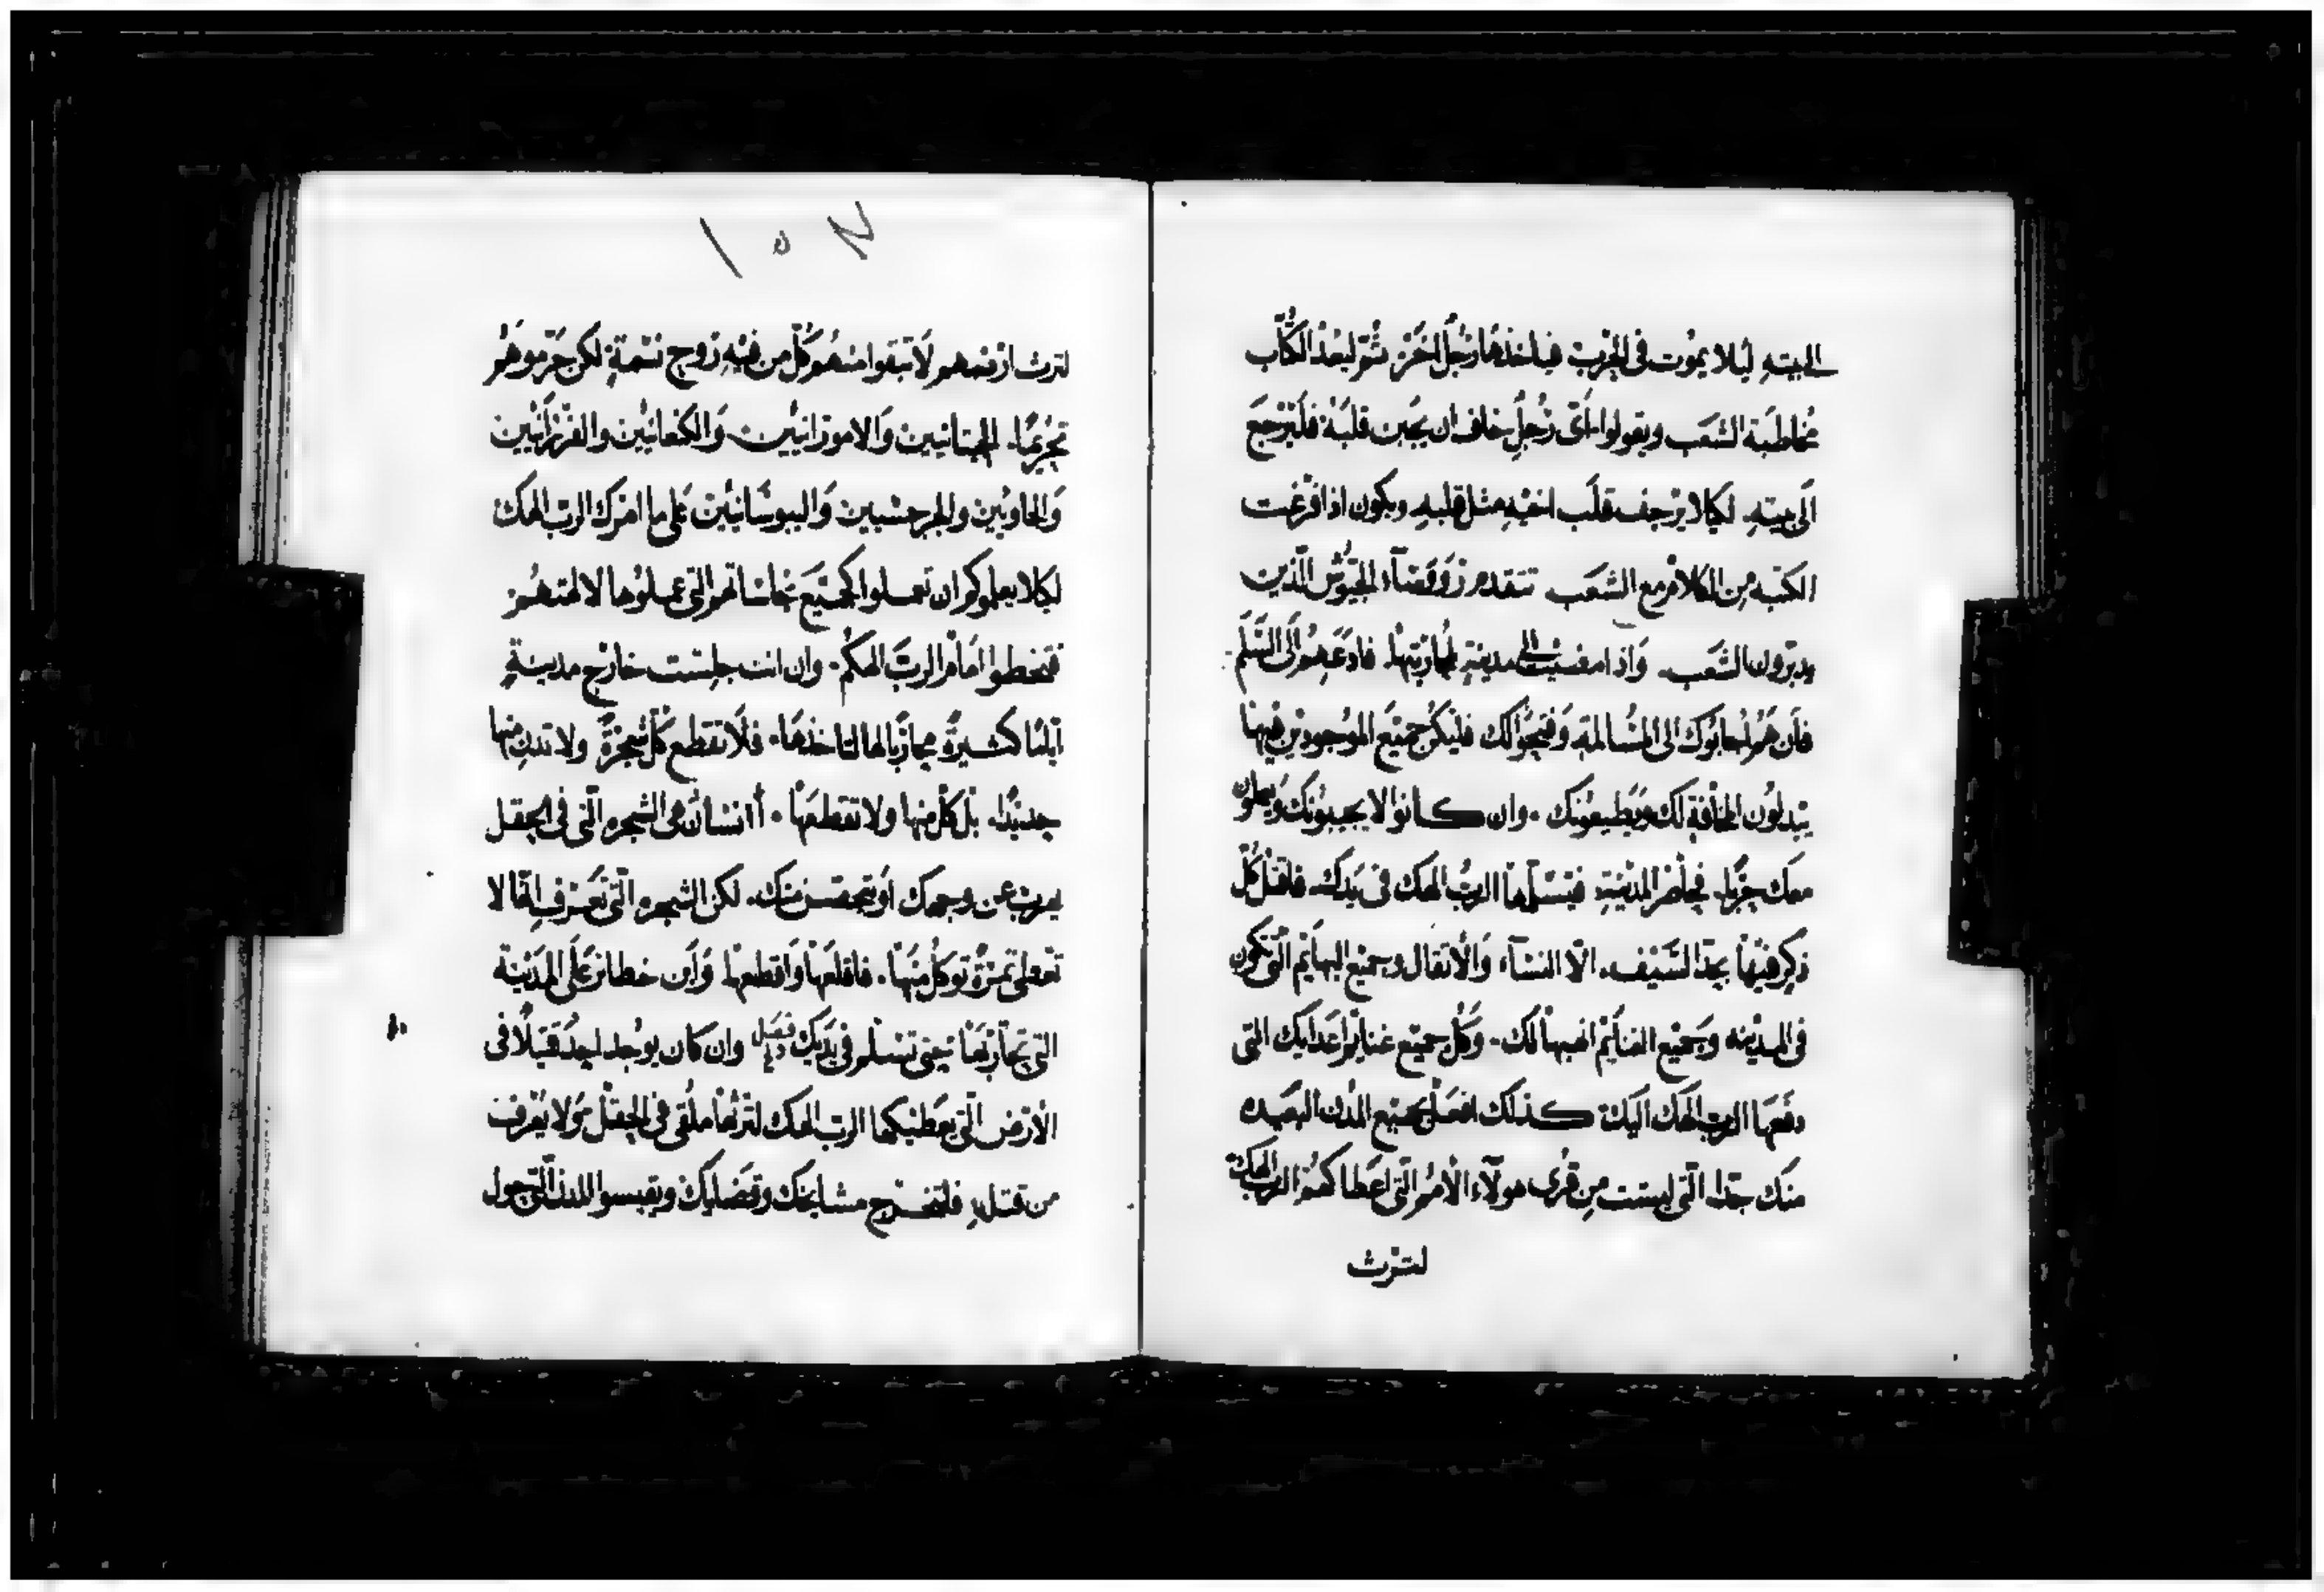 الى بيته ليلا يموت فى الحرب فياخذها رجل اخر ثم ليعد الكتاب
مخاطبة الشعب ويقولوا اى رجل خاف ان يجبن قلبه فليرجع
الى بيته لكيلا يرجف قلب اخيه مثل قلبه ويكون اذا فرغت
الكتبه من الكلام مع الشعب تتقدم روؤساء الجيوش الذين
يدبرون الشعب واذا مضيت الى مدينة لمحاربتها فادعهم الى السلم
فان هم اجابوك الى المسالمة وفتحوا لك فليكن جميع الموجودين فيها
يبدلون لك ويطيعونك وان كانوا لا يجيبونك ويعملون
معك حربا فحاصر المدينة فيسلمها الرب الهك فى يدك فاقتل كل
ذكر فيها بحد السيف الا النساء والاثقال وجميع البهايم التى تكون
فى المدينه وجميع الغنايم انهبها لك وكل جميع غنايم اعدايك التى
دفعها الرب الهك اليك كذلك افعل بجميع المدن البعيده
منك جدا التى ليست من قرى هولاء الامم التى اعطاكهم الرب الهك
لترث
١٥٧
لترث ارضهم لا تبقوا منهم كل من فيه روح نسمة لكن حرموهم
تحريما الحيتانيين والامورانيين والكنعانيين والفرزانيين
والحاويين والجرجسيين واليبوسانيين على ما امرك الرب الهك
لكيلا يعلموكم ان تعملوا كجميع نجاساتهم التى عملوها لالهتهم
فتخطوا امام الرب الهكم وان انت جلست خارج مدينة
اياما كثيرة محاربا لها لتاخذها فلا تقطع كل شجرة ولا تدن منها
حديدا بل كل منها ولا تقطعها أانسان هى الشجره التى فى الحقل
يهرب عن وجهك او يتحصن منك لكن الشجره التى تعرف انها لا
تعطى تمرة توكل منها فاقلعها واقطعها وابن خطاير على المدينة
التى تحاربها حتى تسلم فى يديك فصل وان كان يوجد احد قتيلا فى
الارض التى يعطيكها الرب الهك لترثها ملقى فى الحقل ولا يعرف
من قتله فلتخرج مشايخك وقضايك ويقيسوا المدن التى حول